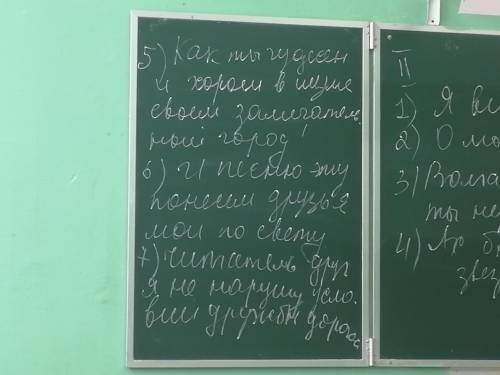 5) Как ты чудесен
и хорош в шуме
своем замечатель
ный город!
6) И песню эту
понесем друзья
мои по свету
7) Читатель друг
я не нарушу усло
вий дружбы
II
1) Я
2) О
3) Волга
ты
4)